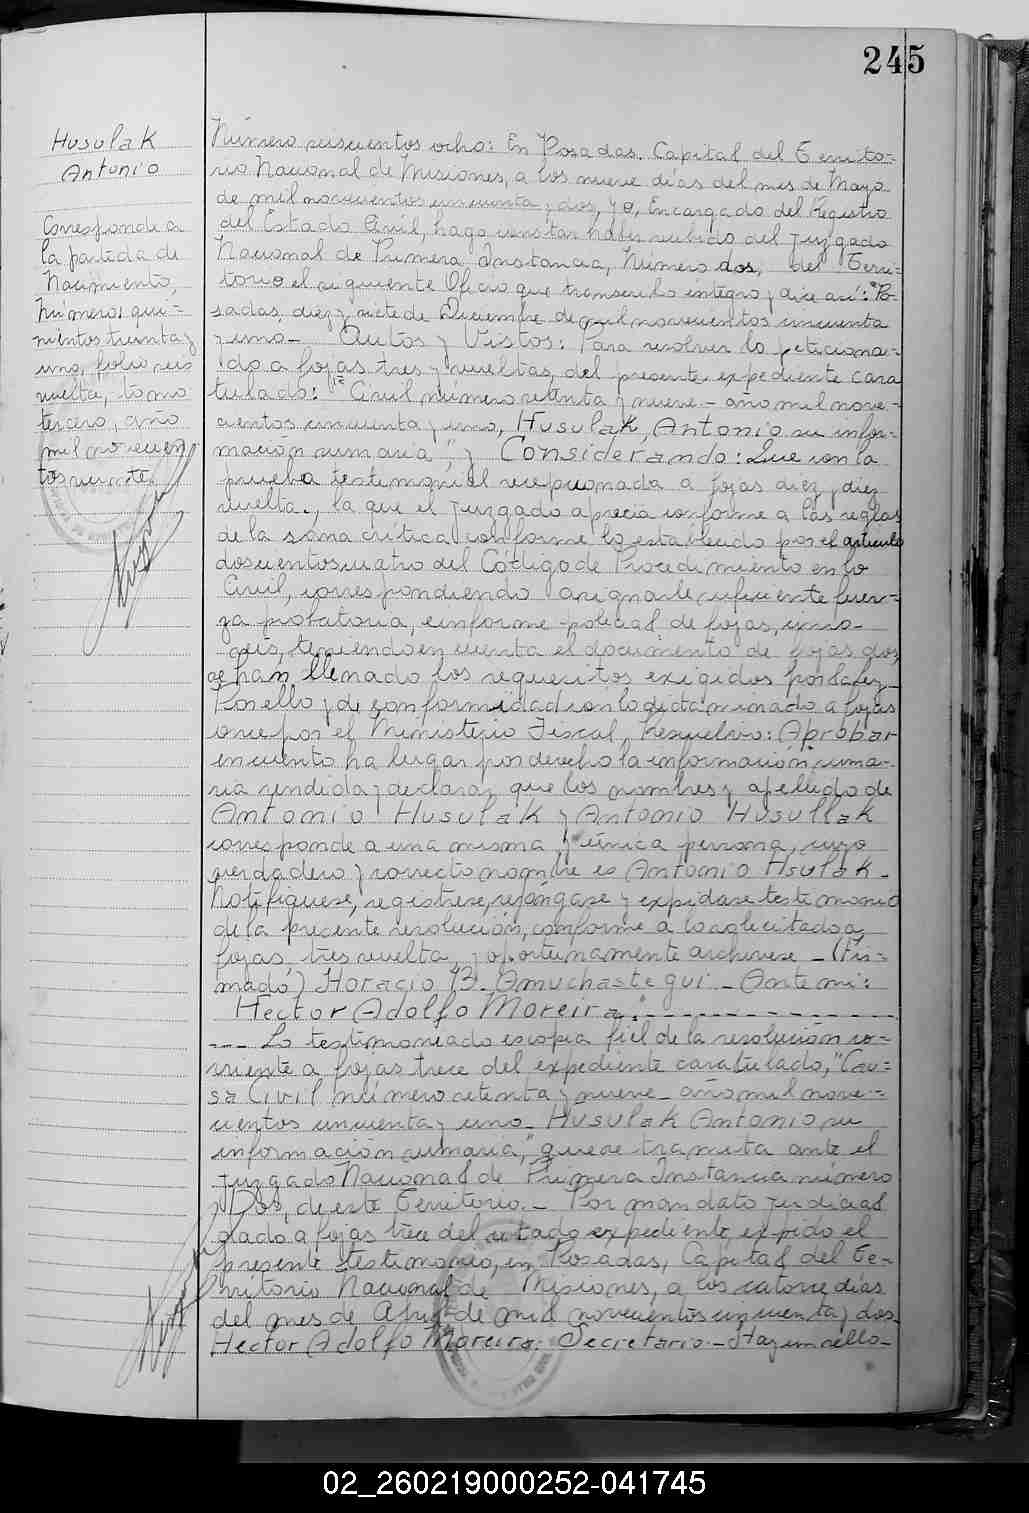 245
Husulak
Antonio
Corresponde a
la partida de
Nacimiento,
Número: qui-
nientos treinta y
uno, folio seis
vuelta, tomo
tercero, año
mil novecien
tos veinte.
Número seiscientos ocho: En Posadas. Capital del Territo-
rio Nacional de Misiones, a los nueve días del mes de Mayo
de mil novecientos cincuenta y dos, yo, Encargado del Registro
del Estado Civil, hago constar haber recibido del juzgado
Nacional de Primera Instancia, Número dos, del Terri-
torio el siguiente Oficio que transcribo integro y dice así: "Po-
sadas, diez y siete de Diciembre de mil novecientos cincuenta
y uno- Autos y Vistos: Para resolver lo peticiona-
do a fojas tres y vueltas, del presente expediente cara
tulado: "Civil número setenta y nueve- año mil nove-
cientos cincuenta y uno, Husulak, Antonio su infor-
mación sumaria", y Considerando: Que con la
prueba testimonial recepcionada a fojas diez y diez
vuelta, la que el juzgado aprecia conforme a las reglas
de la sana crítica conforme lo establecido por el articulo
doscientos cuatro del Código de Procedimiento en lo
Civil, correspondiendo asignarle suficiente fuer-
za probatoria, e informe policial de fojas,
seis, teniendo en cuenta el documento de fojas dos,
se han llenado los requisitos exigidos por la ley_
Por ello y de conformidad con lo dictaminado a fojas
once por el Ministerio Fiscal, Resuelvo: Aprobar
en cuanto ha lugar por derecho la información suma-
ria rendida y declarar que los nombres y apellido de
Antonio Husulak y Antonio Husullak
corresponde a una misma y única persona, cuyo
verdadero y correcto nombre es Antonio Hsulak-
Notifiquese, registrese, repóngase y expidase testimonio
de la presente resolución, conforme a lo solicitado a
fojas tres vuelta, y oportunamente archivese- (Fir-
mado) Horacio B. Amuchastegui- Ante mi:
Hector Adolfo Moreira."
--- Lo testimoniado es copia fiel de la resolución co-
rriente a fojas trece del expediente caratulado, "Cau-
sa Civil número setenta y nueve- año mil nove-
cientos cincuenta y uno- Husulak Antonio su
información sumaria," que se tramita ante el
juzgado Nacional de Primera Instancia número
Dos, de este Territorio.- Por mandato judicial
dado a fojas trece del citado expediente, expido el
presente testimonio, en Posadas, Capital del Te-
rritorio Nacional de Misiones, a los catorce días
del mes de Abril de mil novecientos cincuenta y dos_
Hector Adolfo Moreira. Secretario.- Hay un sello-
02_260219000252-041745